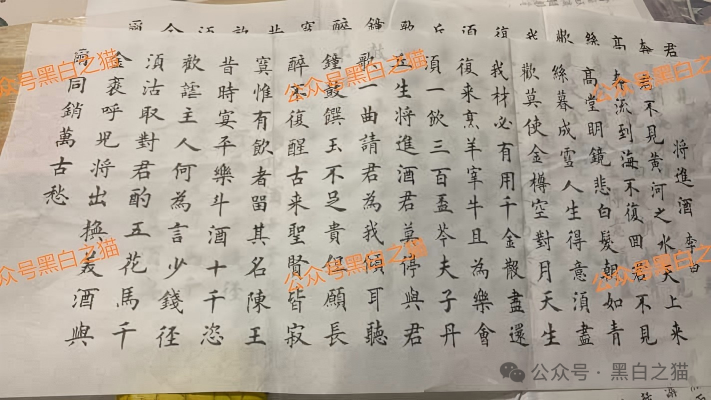 君 奔 高 絲 歡 我 復 須 丘 歌 鐘 醉 寞 昔 歡 須 金 爾
将進酒 李白
君不見黄河之水天上来
奔流到海不復回君不見
高堂明鏡悲白髮朝如青
絲暮成雪人生得意須盡
歡莫使金樽空對月天生
我材必有用千金散盡還
復来烹羊宰牛且為樂會
須一飲三百盃岑夫子丹
丘生将進酒君莫停與君
歌一曲請君為我傾耳聽
鐘鼓饌玉不足貴但願長
醉不復醒古来聖賢皆寂
寞惟有飲者留其名陳王
昔時宴平樂斗酒十千恣
歡謔主人何為言少錢径
須沽取對君酌五花馬千
金裘呼児将出換美酒與
爾同銷萬古愁
公众号黑白之猫
公众号黑白之猫
公众号黑白之猫
公众号黑白之猫
公众号黑白之猫
公众号黑白之猫
公众号·黑白之猫